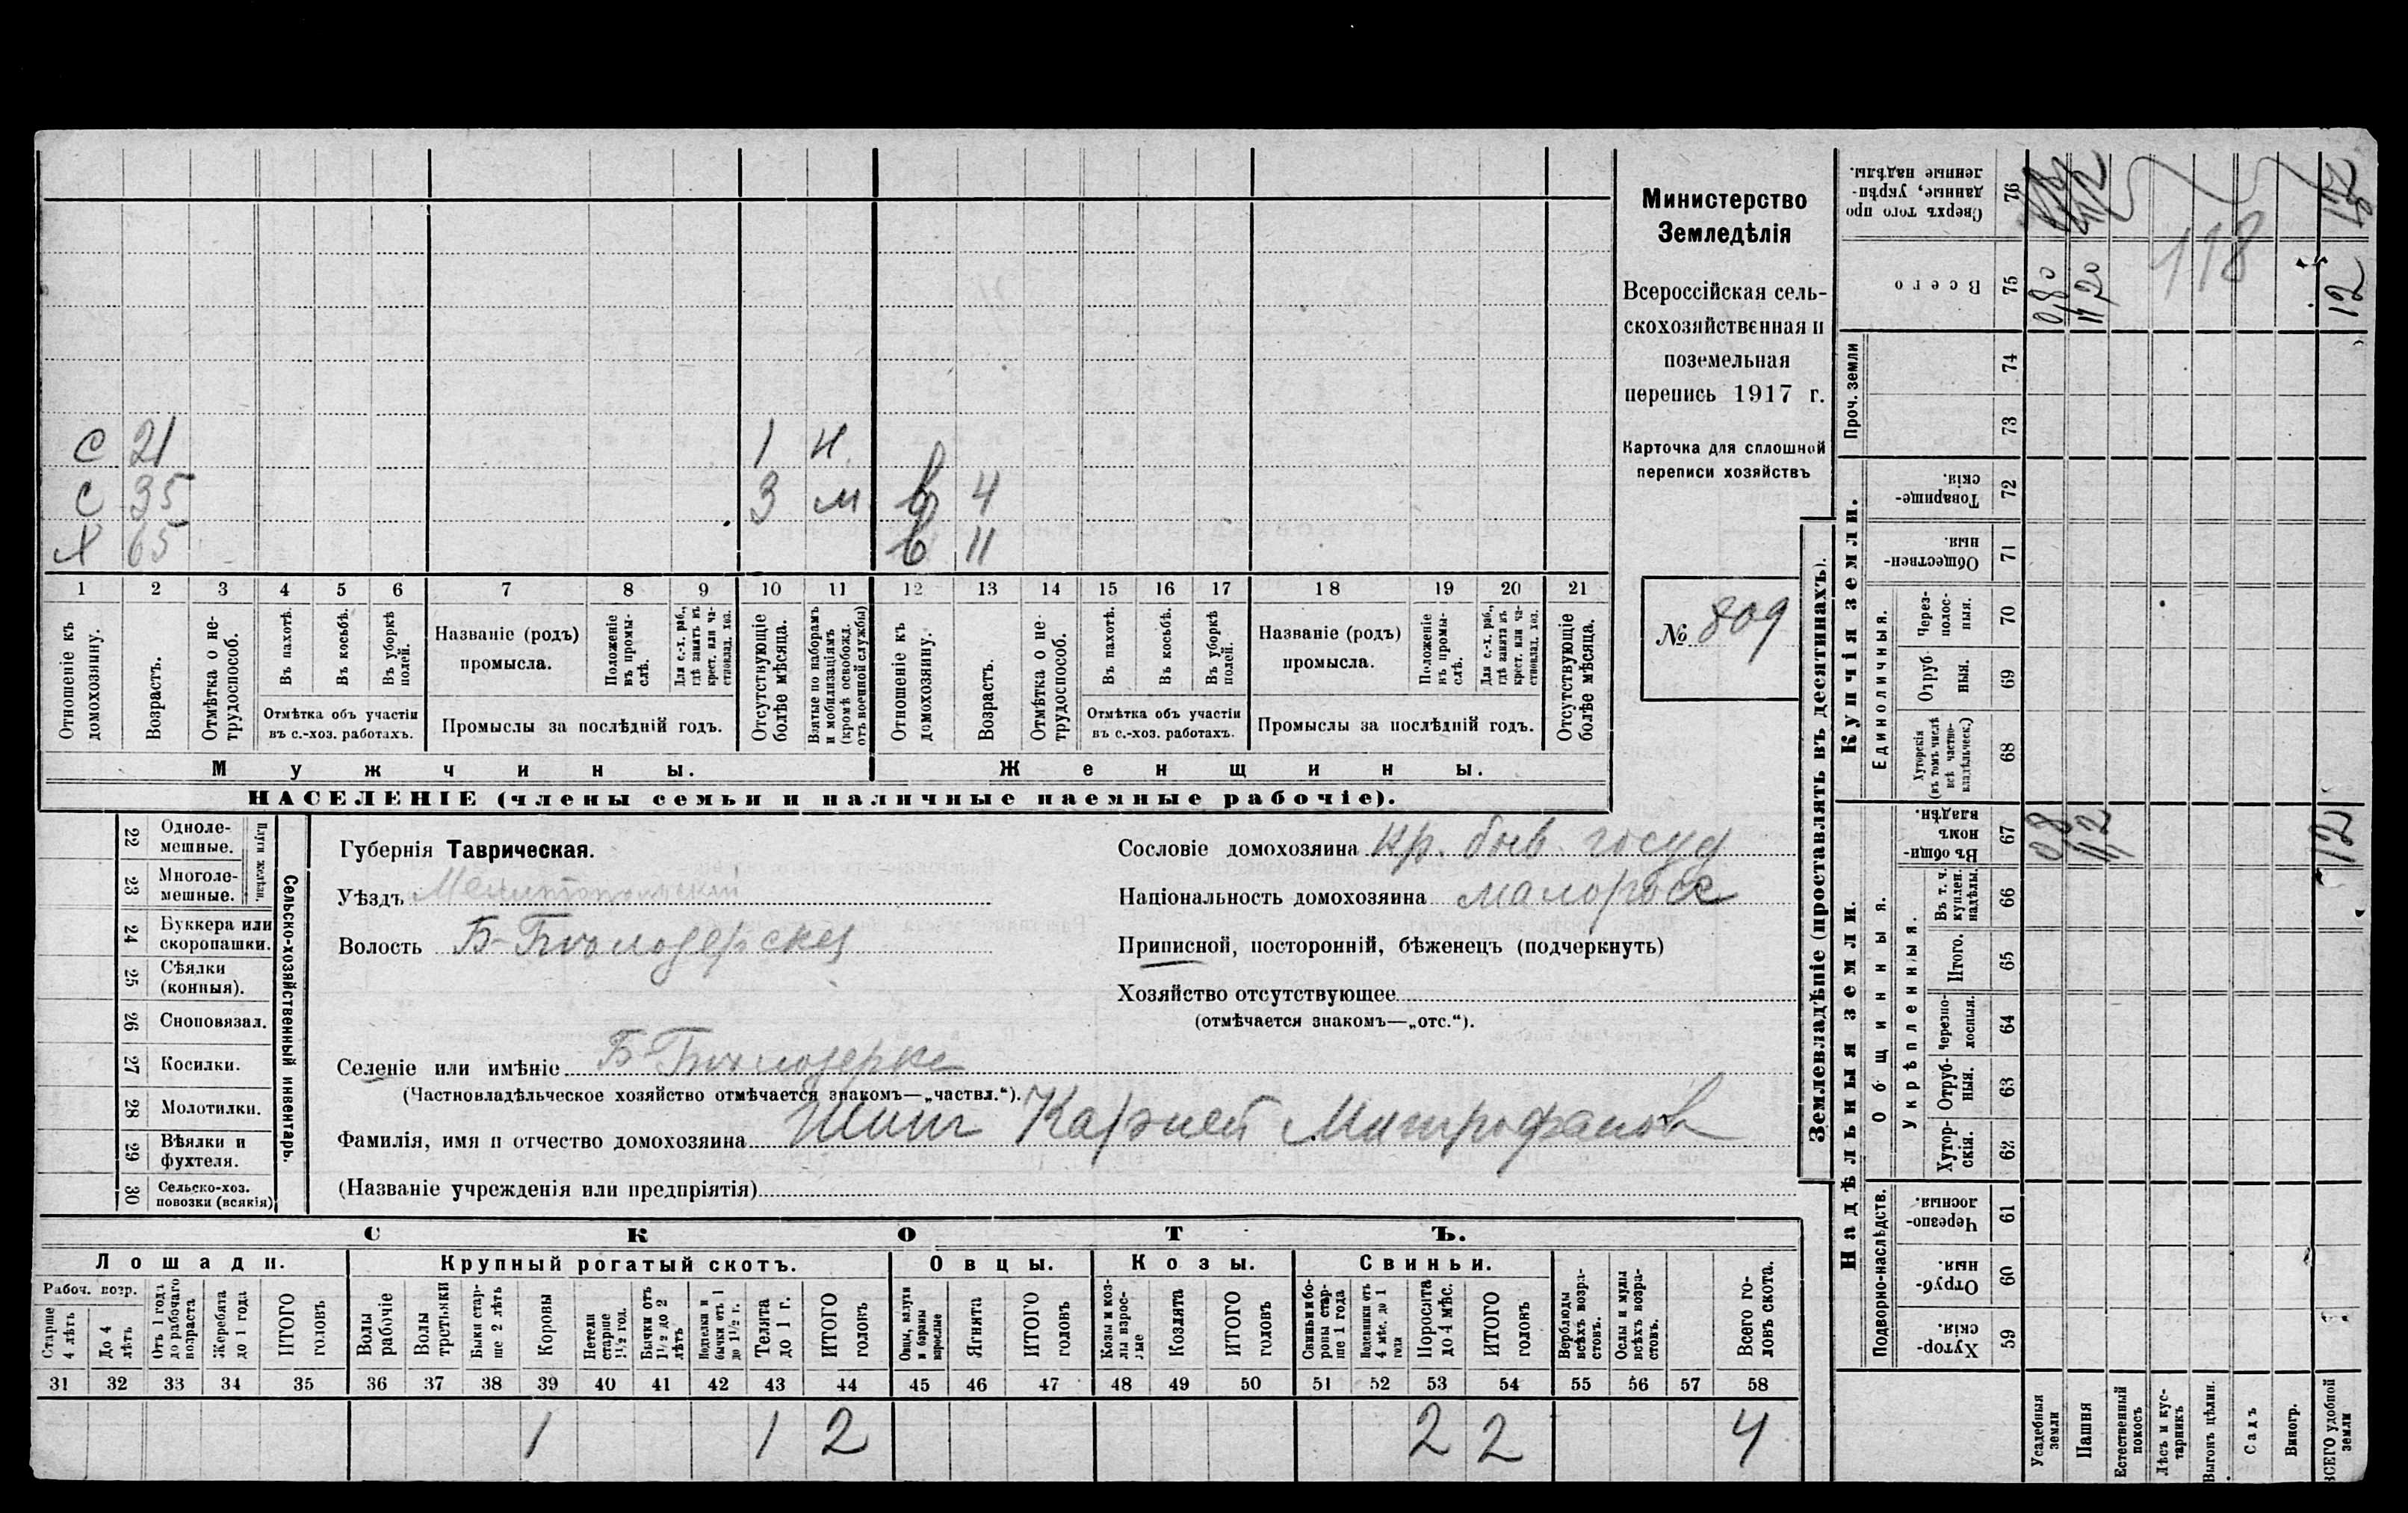 С 21 1 н
С 35 3 м в 4
Х 65 в 11
1 2 3 4 5 6 7 8 9 10 11 12 13 14 15 16 17 18 19 20 21
Отношеніе къ домохозяину.
Возрастъ.
Отмѣтка о нетрудоспособ.
Въ пахотѣ.
Въ косьбѣ.
Въ уборкѣ полей.
Отмѣтка объ участіи
въ с.-хоз. работахъ.
Названіе (родъ)
промысла.
Положеніе въ промыслѣ.
Для с.-х. раб., гдѣ занятъ въ крест. или частновлад. хоз.
Промыслы за послѣдній годъ.
Отсутствующіе болѣе мѣсяца.
Взятые по наборамъ и мобилизаціямъ (кромѣ освобожд. отъ военной службы)
Отношеніе къ домохозяину.
Возрастъ.
Отмѣтка о нетрудоспособ.
Въ пахотѣ.
Въ косьбѣ.
Въ уборкѣ полей.
Отмѣтка объ участіи
въ с.-хоз. работахъ.
Названіе (родъ)
промысла.
Положеніе въ промыслѣ.
Для с.-х. раб., гдѣ занята въ крест. или частновлад. хоз.
Промыслы за послѣдній годъ.
Отсутствующіе болѣе мѣсяца.
Мужчины.
Женщины.
НАСЕЛЕНІЕ (члены семьи и наличные наемные рабочіе).
Министерство
Земледѣлія
Всероссійская сель-
скохозяйственная и
поземельная
перепись 1917 г.
Карточка для сплошной
переписи хозяйствъ
№ 809
22 Одноле-
мешные.
23 Многоле-
мешные.
Плуги желѣзн.
24 Буккера или
скоропашки.
25 Сѣялки
(конныя).
26 Сноповязал.
27 Косилки.
28 Молотилки.
29 Вѣялки и
фухтеля.
30 Сельско-хоз.
повозки (всякія)
Сельско-хозяйственный инвентарь.
Губернія Таврическая.
Уѣздъ Мелитопольскій
Волость Б-Бѣлозерская
Селеніе или имѣніе Б-Бѣлозерка
(Частновладѣльческое хозяйство отмѣчается знакомъ—„частвл.“).
Фамилія, имя и отчество домохозяина Шишъ Карней Митрофановъ
(Названіе учрежденія или предпріятія)
Сословіе домохозяина кр. быв. госуд
Національность домохозяина малоросс
Приписной, посторонній, бѣженецъ (подчеркнуть)
Хозяйство отсутствующее
(отмѣчается знакомъ—„отс.“).
СКОТЪ.
Лошади. Крупный рогатый скотъ. Овцы. Козы. Свиньи.
Рабоч. возр.
Старше 4 лѣтъ
До 4 лѣтъ
Отъ 1 года до рабочаго возраста
Жеребята до 1 года
ИТОГО головъ
Волы рабочіе
Волы третьяки
Быки старше 2 лѣтъ
Коровы
Нетели старше 1½ год.
Бычки отъ 1½ до 2 лѣтъ
Телки и бычки отъ 1 до 1½ г.
Телята до 1 г.
ИТОГО головъ
Овцы, валухи и бараны взрослые
Ягнята
ИТОГО головъ
Козы и козлы взрослые
Козлята
ИТОГО головъ
Свиньи и боровы старше 1 года
Подсвинки отъ 4 мѣс. до 1 года
Поросята до 4 мѣс.
ИТОГО головъ
Верблюды всѣхъ возрастовъ.
Ослы и мулы всѣхъ возрастовъ.
Всего головъ скота.
31 32 33 34 35 36 37 38 39 40 41 42 43 44 45 46 47 48 49 50 51 52 53 54 55 56 57 58
1 1 2 2 2 4
Землевладѣніе (проставлять въ десятинахъ).
Надѣльныя земли.
Купчія земли.
Проч. земли
Подворно-наслѣдств.
Общинныя.
Укрѣпленныя.
Единоличныя.
Хуторскія. 59
Отрубныя. 60
Черезполосныя. 61
Хуторскія. 62
Отрубныя. 63
Черезполосныя. 64
Итого. 65
Въ т. ч. куплен. надѣлы. 66
Въ общинномъ владѣн. 67
Хуторскія (въ томъ числѣ всѣ частновладѣльческ.) 68
Отрубныя. 69
Черезполосныя. 70
Общественныя. 71
Товарищескія. 72
73
74
Всего 75
Сверхъ того проданные, укрѣпленные надѣлы. 76
Усадебныя земли
Пашня
Естественный покосъ
Лѣсъ и кустарникъ
Выгонъ цѣлин.
Садъ
Виногр.
ВСЕГО удобной земли
0,8
11,2
12
0,80
11,20
12
118